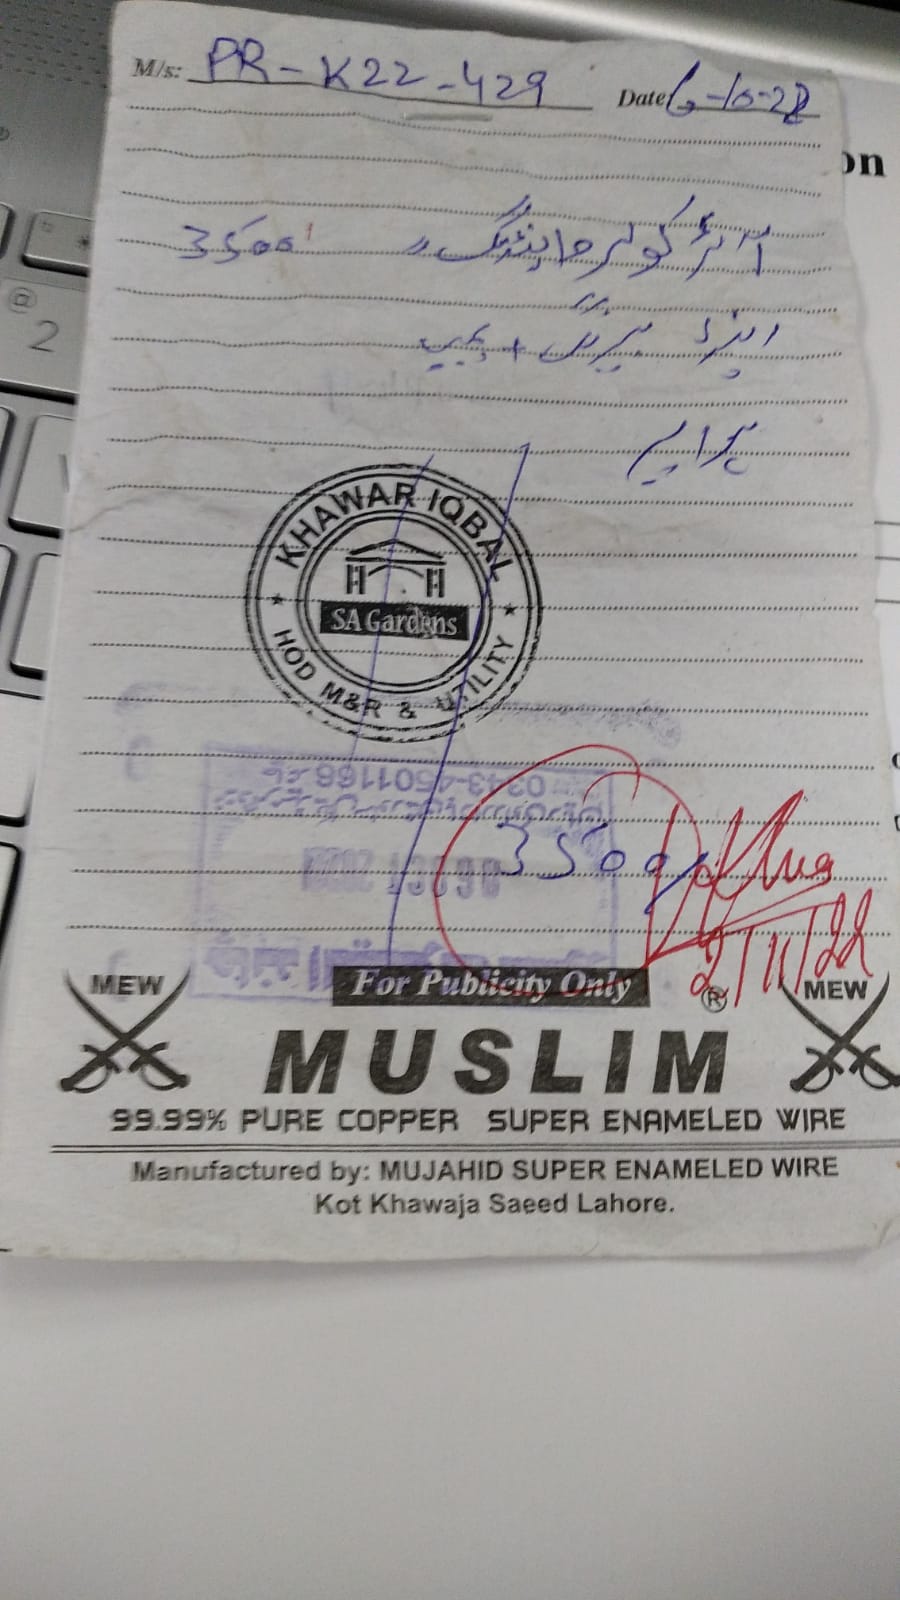 M/s: PR-K22-429 Date 6-10-22
on
آئر کولر وائینڈنگ 3500
اینڈ بیرنگ + پمپ
KHAWAR IQBAL
SA Gardens
HOD M&R & UTILITY
0343-4501166
3500
2/11/22
For Publicity Only
MEW ® MEW
MUSLIM
99.99% PURE COPPER SUPER ENAMELED WIRE
Manufactured by: MUJAHID SUPER ENAMELED WIRE
Kot Khawaja Saeed Lahore.
@
2